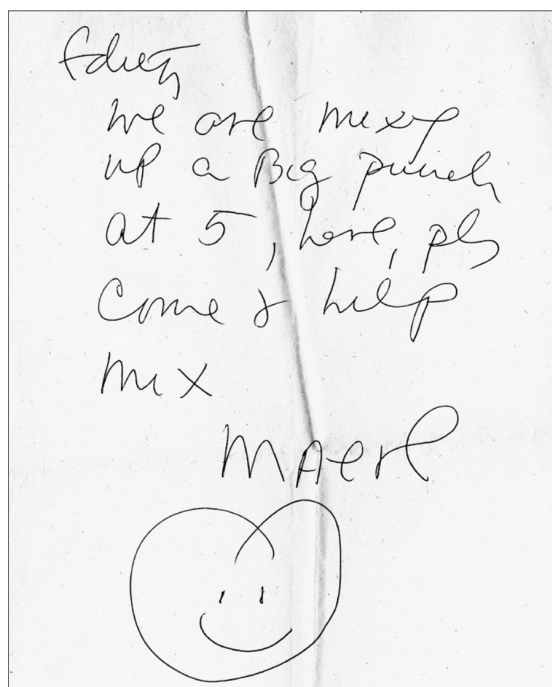 Edith
We are mixg
up a Big punch
at 5, here, pls
Come & help
mix
Maere